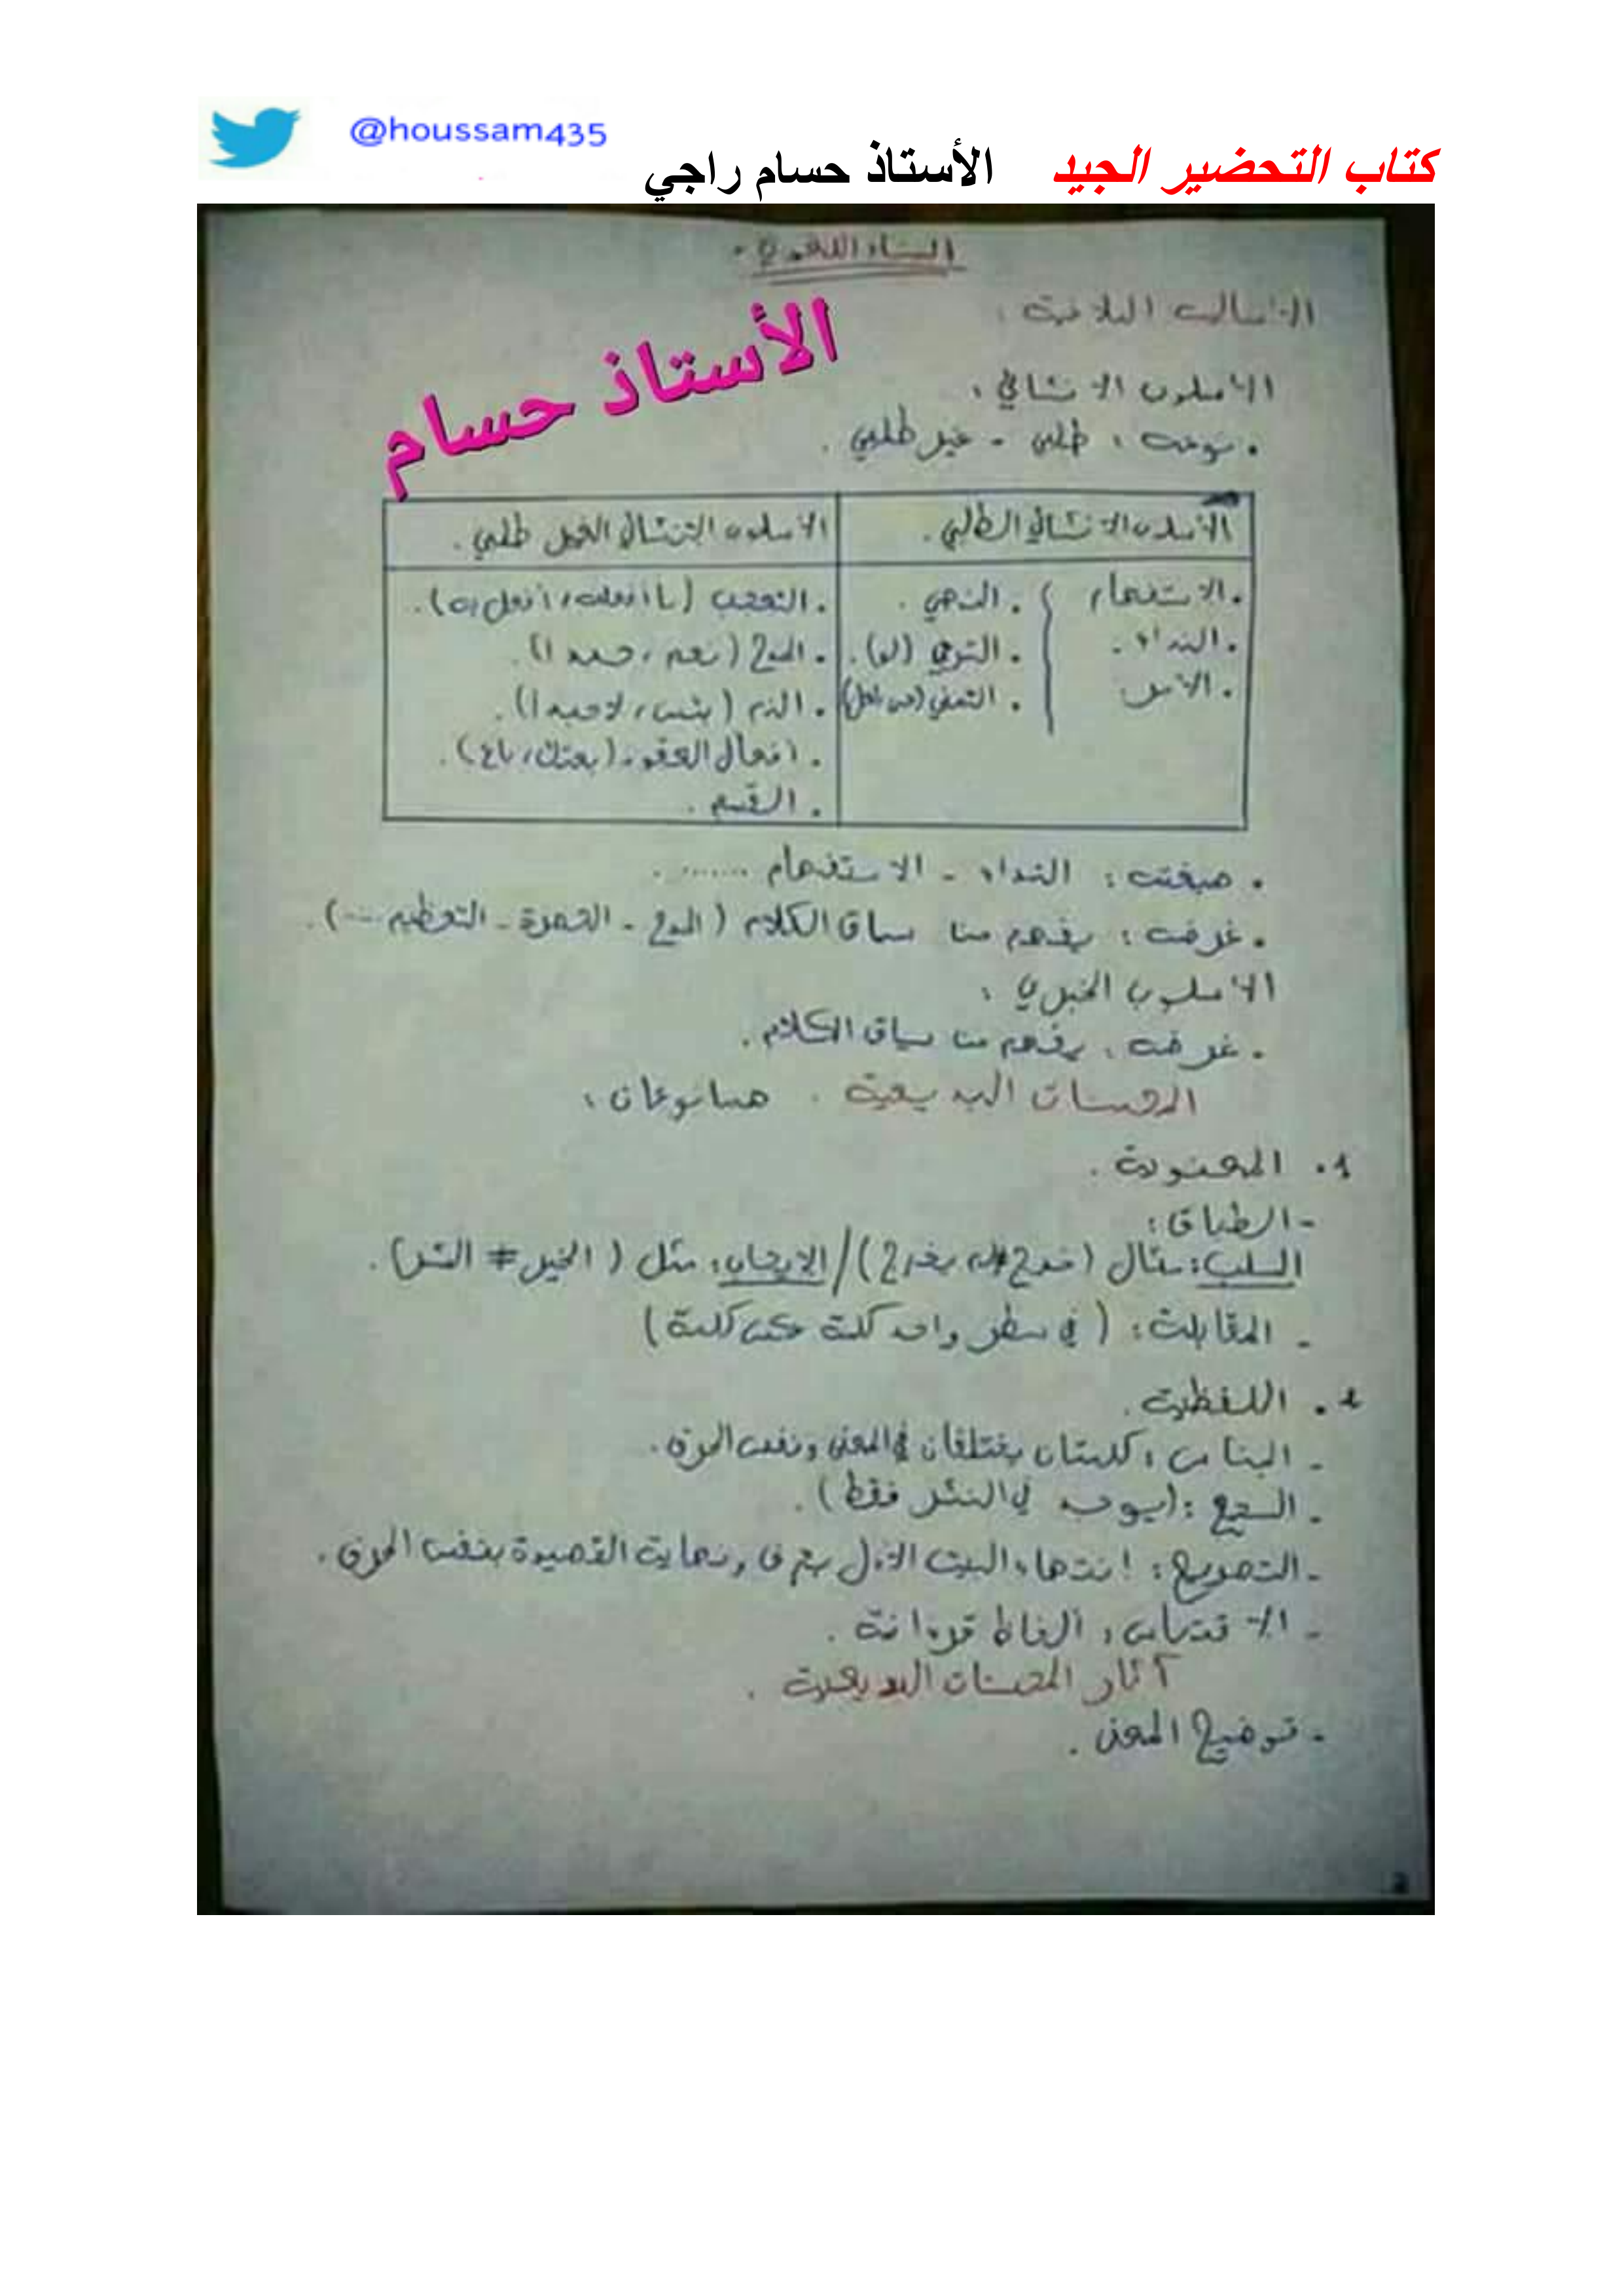 @houssam435
كتاب التحضير الجيد الأستاذ حسام راجي
البناء اللغوي.
الأساليب البلاغية:
الأستاذ حسام
الأسلوب الانشائي:
. نوعه: طلبي - غير طلبي.
الأسلوب الانشائي الطلبي. الأسلوب الانشائي الغير طلبي.
. الاستفهام . النهي. . التعجب (ما أفعله، أفعل به).
. النداء. . الترجي (لو). . المدح (نعم، حبذا).
. الأمر . التمني (هل) . الذم (بئس، لا حبذا).
. افعال العقود (بعتك، باع).
. القسم.
. صيغته: النداء - الاستفهام .......
. غرضه: يفهم من سياق الكلام (المدح - الحسرة - التعظيم ...).
الأسلوب الخبري:
. غرضه: يفهم من سياق الكلام.
المحسنات البديعية. هما نوعان:
1. المعنوية.
- الطباق:
السلب: مثال (خرج ≠ لم يخرج) / الايجاب: مثل (الخير ≠ الشر).
- المقابلة: (في سطر واحد كلمة عكس كلمة)
2. اللفظية.
- الجناس: كلمتان يختلفان في المعنى ونفس الحرف.
- السجع: (يوجد في النثر فقط).
- التصريع: انتهاء البيت الأول بحرف ونهاية القصيدة بنفس الحرف.
- الاقتباس: ألفاظ قرءانية.
آثار المحسنات البديعية.
- توضيح المعنى.